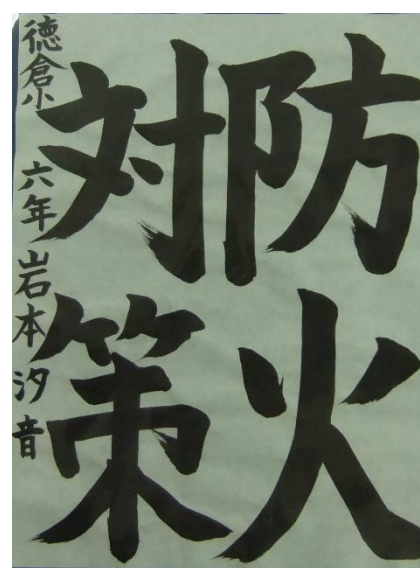 防火
対策
徳倉小 六年 岩本汐音